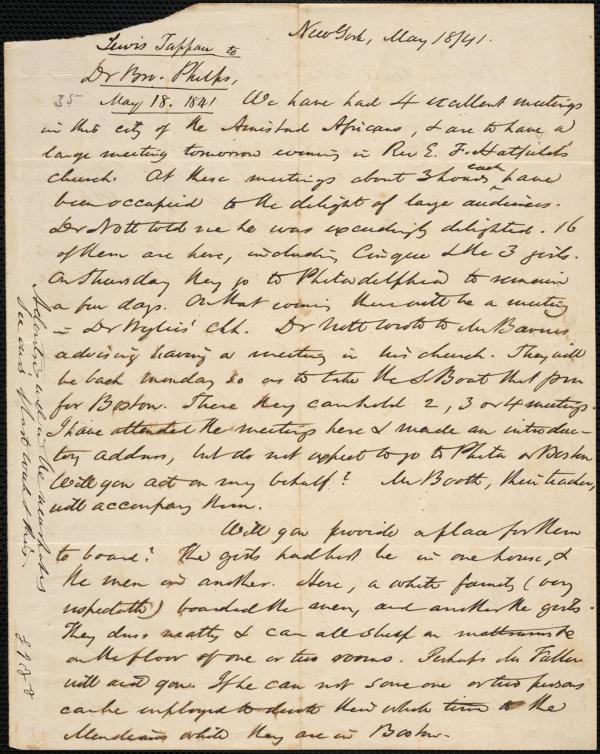 New York, May 18/41.
Lewis Tappan to
Dr Bro. Phelps,
35 May 18. 1841 We have had 4 excellent meetings
in this city of the Amistad Africans, & are to have a
large meeting tomorrow evening in Rev E. F. Hatfield's
church. At these meetings about 3 hours each have
been occupied to the delight of large audiences.
Dr Nott told me he was exceedingly delighted. 16
of them are here, including Cinque & the 3 girls.
On Thursday they go to Philadelphia to remain
a few days. On that evening there will be a meeting
in Dr Wylie's Chh. Dr Nott wrote to Mr Barnes
advising having a meeting in his church. They will
be back monday so as to take the S Boat that pm
for Boston. There they can hold 2, 3 or 4 meetings.
I have attended the meetings here & made an introduc-
tory address, but do not expect to go to Phila or Boston
Will you act on my behalf? Mr Booth, their teacher,
will accompany them.
Will you provide a place for them
to board? The girls had best be in one house, &
the men in another. Here, a white family (very
respectable) boarded the men, and another the girls.
They dress neatly & can all sleep on mattresses
on the floor of one or two rooms. Perhaps Mr Fuller
will aid you. If he can not some one or two persons
can be employed to devote their whole time to the
Mendians while they are in Boston.
in the newspapers